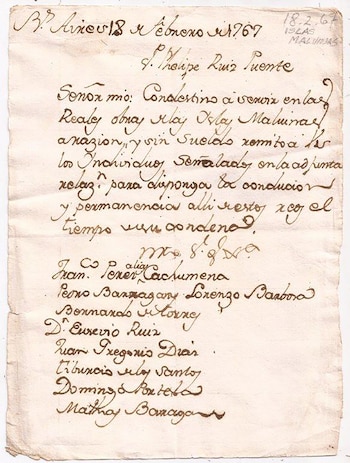 Bs Aires 18 de Febrero de 1767
18.2.67
ISLAS
MALVINAS
Dn Phelipe Ruiz Puente
Señor mio: Con destino a servir en las
Reales obras de las Yslas Malvinas
a razion, y sin sueldo remito a
los Individuos señalados en la adjunta
relazn para disponga la conducion
y permanencia alli de estos reos el
tiempo de su condena.
Franco Perez alias Cachumena
Pedro Barragan y Lorenzo Barbosa
Bernardo de torres
Dn Eusevio Ruiz
Juan Gregorio Diaz
tiburcio de los santos
Domingo Portela
Mathias Barragan